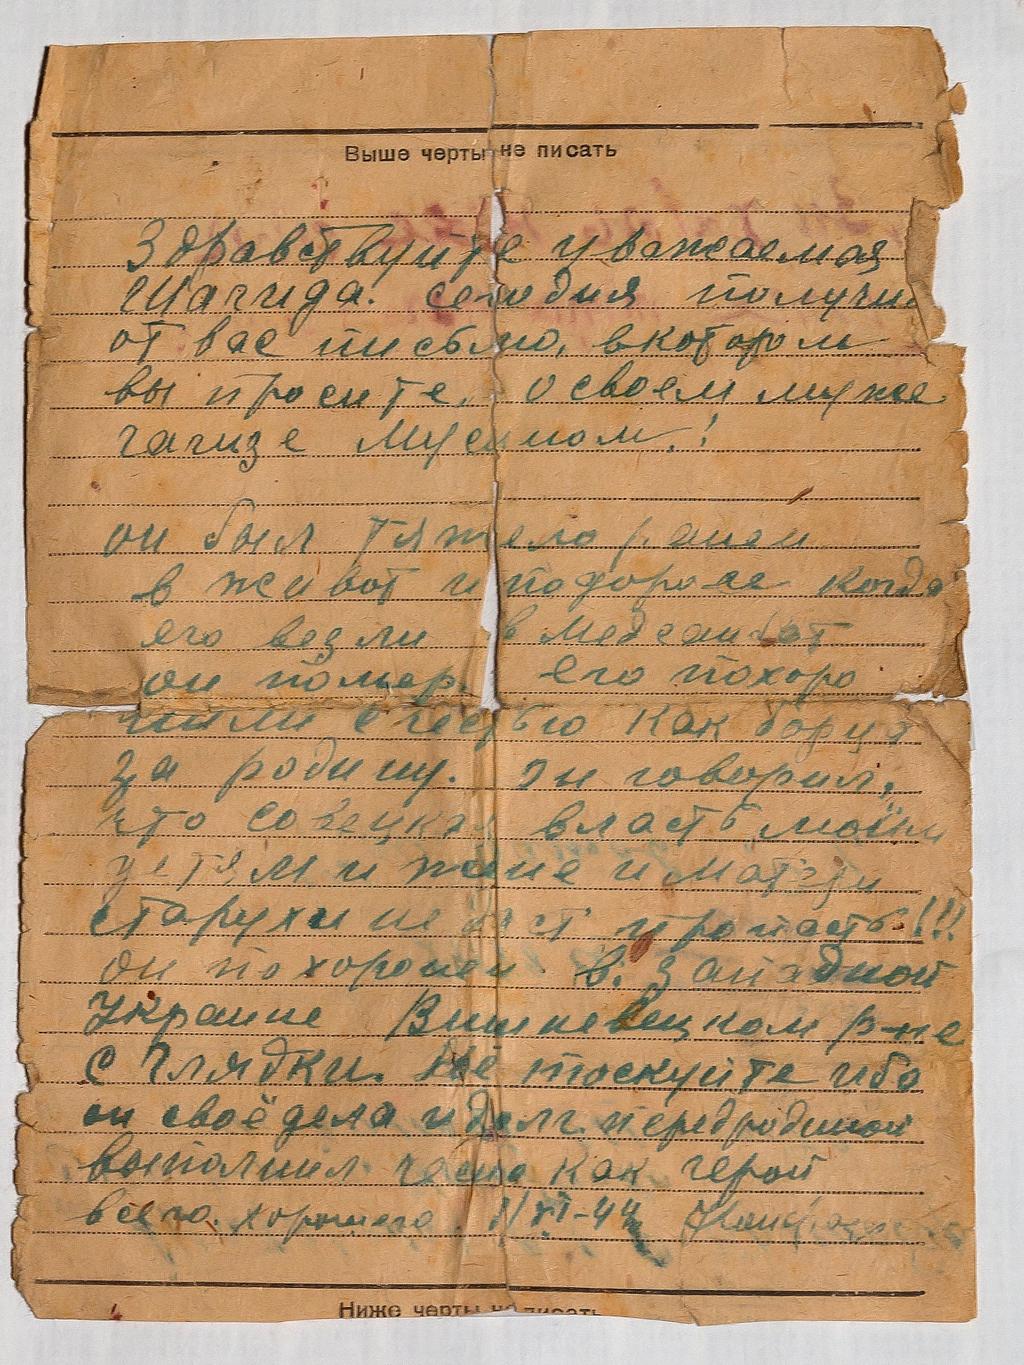 Выше черты не писать
Здравствуйте уважаемая
Шагида. сегодня получил
от вас письмо, в котором
вы просите, о своем муже
гагизе Мусином.!
он был тяжело ранен
в живот и по дороге когда
его везли в Медсанбат
он помер. его похоро
нили с честью как борца
за родину. он говорил,
что совецкая власть моим
детям и жене и матери
старухи не даст пропасть!!!
он похоронен в. западной
Украине Вишневецком р-не
с Глядки. Не тоскуйте ибо
он своё дела и долг перед родиной
выполнил честно как герой
всего хорошего. /VI-44
Ниже черты не писать